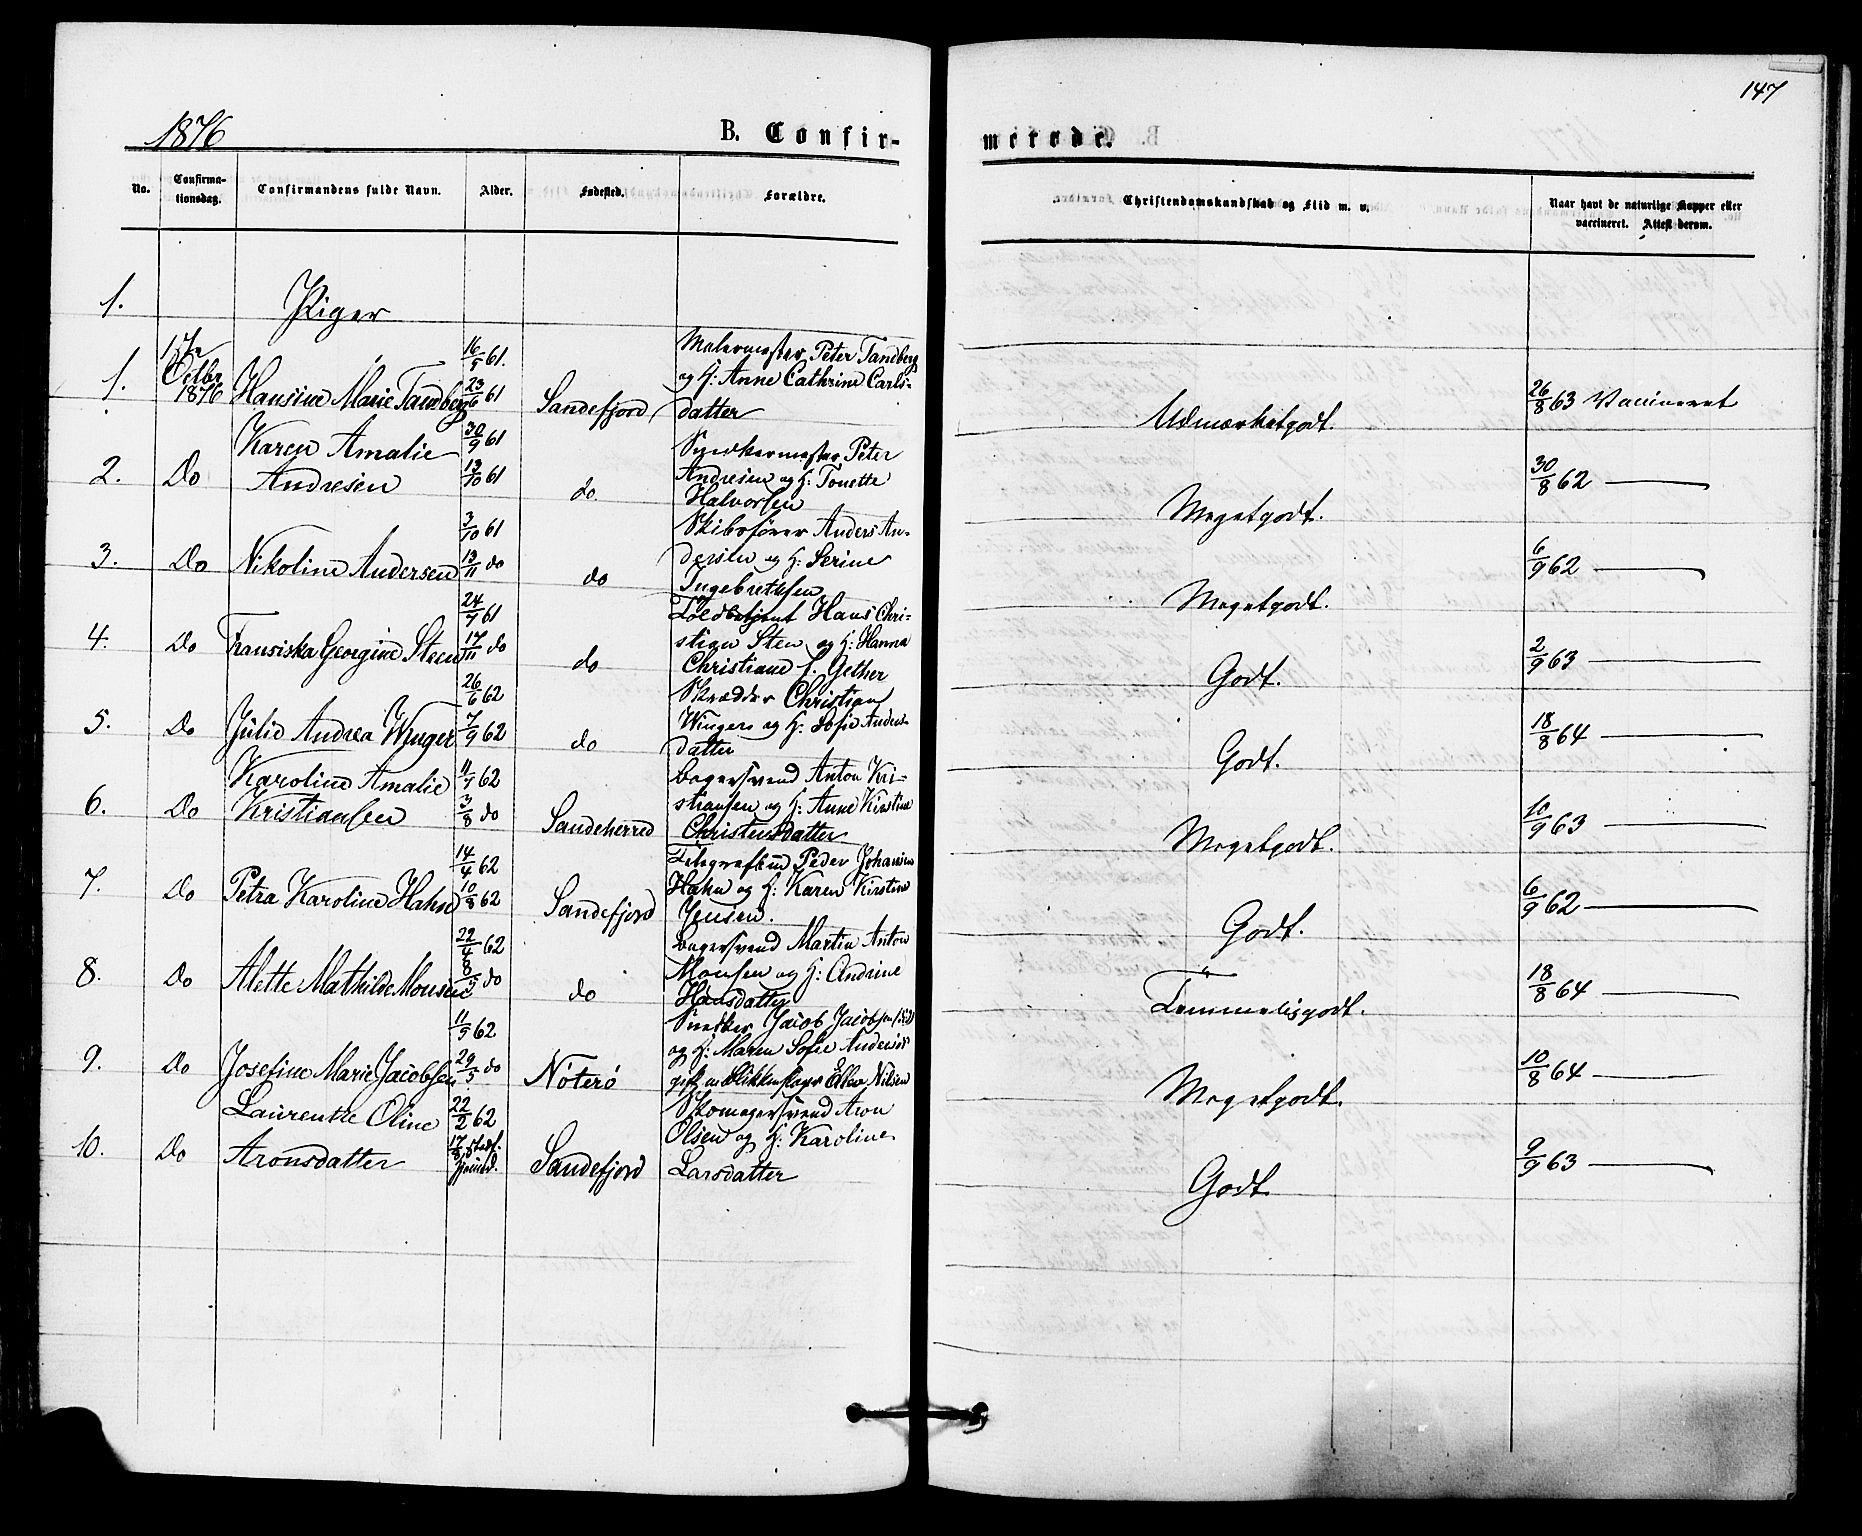 147
1876
B. Confir-
merede.
No.
Confirma-
tionsdag.
Confirmandens fulde Navn.
Alder.
Fødested.
Forældre.
Christendomskundskab og Flid m. v.
Naar havt de naturlige Kopper eller
vaccineret. Attest derom.
1.
Piger
1.
Octbr
1876
Hansine Marie Tandberg
16/5 61.
23/6 61
Sandefjord
Malermester Peter Tandberg
og H: Anne Cathrine Carls-
datter
Udmærketgodt.
26/8 63 Vaccineret
2.
Do
Karen Amalie
Andresen
30/9 61
13/10 61
do
Snedkermester Peter
Andresen og H: Tonette
Halvorsen
Megetgodt.
30/8 62 —
3.
Do
Nikoline Andersen
3/10 61
13/11 do
do
Skibsfører Anders An-
dersen og H: Serine
Ingebretsen
Megetgodt.
6/9 62 —
4.
Do
Fransiska Georgine Steen
24/9 61
17/11 do
do
Toldbetjent Hans Chri-
stian Sten og H: Hanna
Christiane f. Gether
Godt.
2/9 63 —
5.
Do
Julie Andrea Winger
26/6 62
7/9 62
do
Skrædder Christian
Winger og H: Sofie Anders-
datter
Godt.
18/8 64 —
6.
Do
Karoline Amalie
Kristiansen
11/7 62
3/8 do
Sandeherred
Bagersvend Anton Kri-
stiansen og H: Anne Kirstine
Christensdatter
Megetgodt.
10/9 63 —
7.
Do
Petra Karoline Hahn
14/4 62
10/8 62
Sandefjord
Telegrafbud Peder Johansen
Hahn og H: Karen Kirstine
Jensen.
Godt.
6/9 62 —
8.
Do
Alette Mathilde Monsen
22/4 62
8/5 do
do
Bagersvend Martin Anton
Monsen og H: Andrine
Hansdatter
Temmeligodt.
18/8 64 —
9.
Do
Josefine Marie Jacobsen
11/5 62
29/5 do
Nøterø
Snedker Jacob Jacobsen
og H: Maren Sofie Andersdr
gift m Blikkenslager Nilsen
Megetgodt.
10/8 64 —
10.
Do
Laurentze Oline
Aronsdatter
22/2 62
17/8
Sandefjord
Skomagersvend Aron
Olsen og H: Karoline
Larsdatter
Godt
9/9 63 —